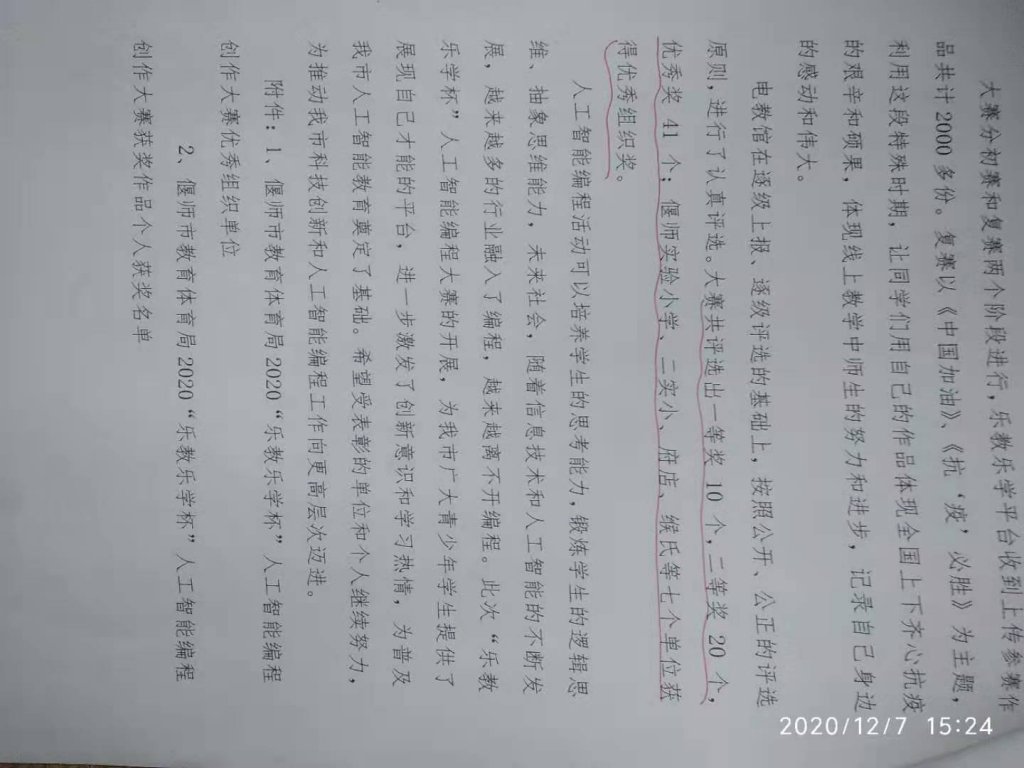 大赛分初赛和复赛两个阶段进行，乐教乐学平台收到上传参赛作
品共计 2000 多份。复赛以《中国加油》、《抗‘疫’必胜》为主题，
利用这段特殊时期，让同学们用自己的作品体现全国上下齐心抗疫
的艰辛和硕果，体现线上教学中师生的努力和进步，记录自己身边
的感动和伟大。
电教馆在逐级上报、逐级评选的基础上，按照公开、公正的评选
原则，进行了认真评选。大赛共评选出一等奖 10 个，二等奖 20 个，
优秀奖 41 个；偃师实验小学、二实小、府店、缑氏等七个单位获
得优秀组织奖。
人工智能编程活动可以培养学生的思考能力，锻炼学生的逻辑思
维、抽象思维能力，未来社会，随着信息技术和人工智能的不断发
展，越来越多的行业融入了编程，越来越离不开编程。此次“乐教
乐学杯”人工智能编程大赛的开展，为我市广大青少年学生提供了
展现自己才能的平台，进一步激发了创新意识和学习热情，为普及
我市人工智能教育奠定了基础。希望受表彰的单位和个人继续努力，
为推动我市科技创新和人工智能编程工作向更高层次迈进。
附件：1、偃师市教育体育局 2020“乐教乐学杯”人工智能编程
创作大赛优秀组织单位
2、偃师市教育体育局 2020“乐教乐学杯”人工智能编程
创作大赛获奖作品个人获奖名单
2020/12/7 15:24